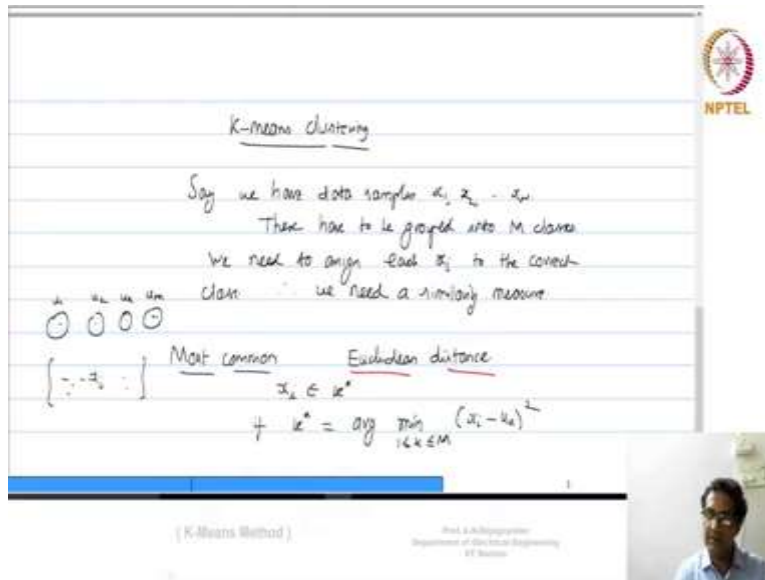 NPTEL
K-means clustering
Say we have data samples x₁ x₂ - xₙ
These have to be grouped into M classes
We need to assign each xᵢ to the correct
class ∴ we need a similarity measure
Most common Euclidean distance
xᵢ ∈ k*
if k* = arg min (xᵢ - uₖ)²
1≤k≤M
1
( K-Means Method )
Department of Electrical Engineering